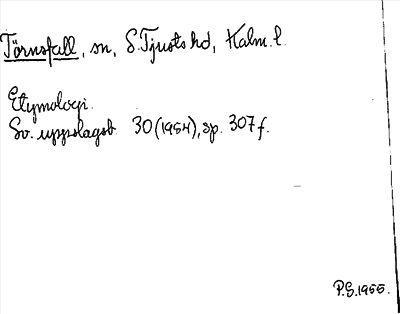 Törnsfall, sn, S. Tjusts hd, Kalm. l.
Etymologi.
Sv. uppslagsb. 30 (1954), sp. 307 f.
P.S. 1955.